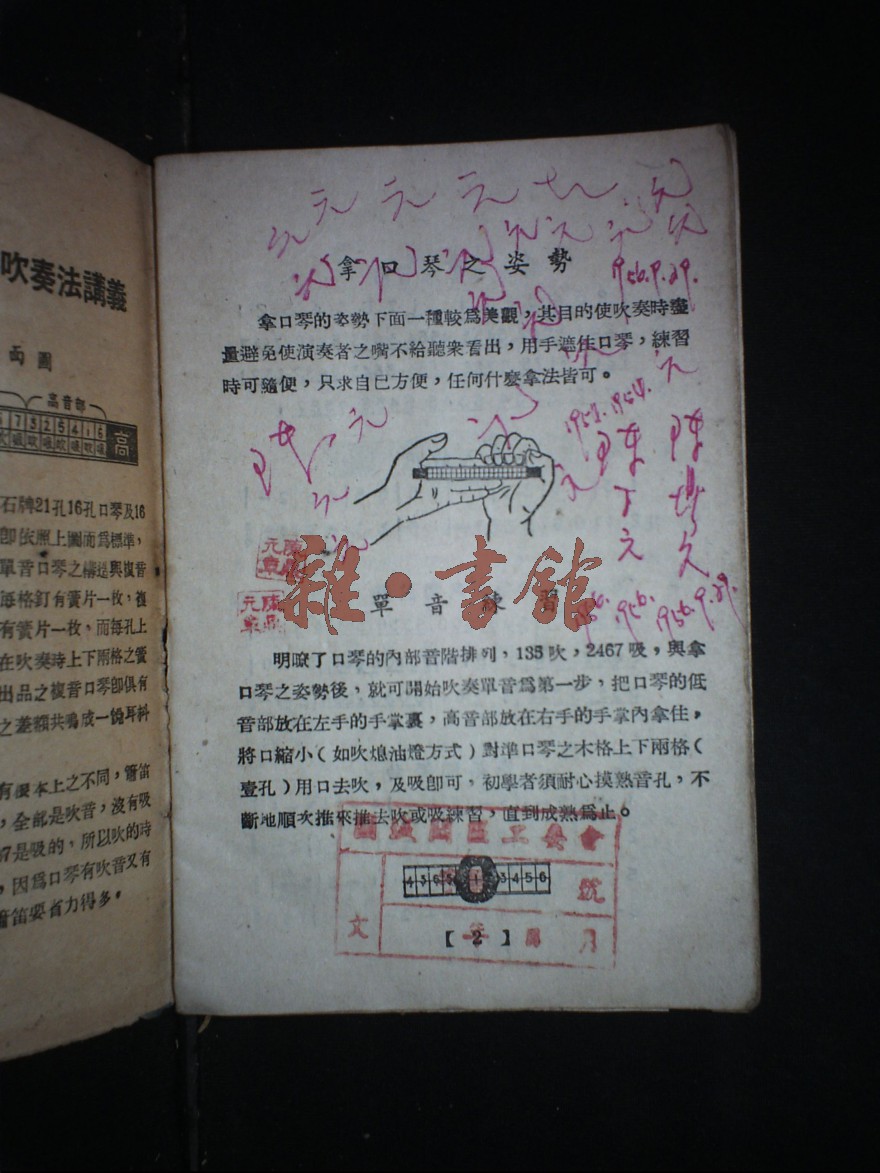 吹奏法講義
面圖
高音部
7 3 2 5 4 i 6
吸吹吸吹吸吹吸 高
石牌21孔16孔口琴及16
卽依照上圖而爲標準,
單音口琴之構造與複音
每格釘有簧片一枚,複
有簧片一枚,而每孔上
在吹奏時上下兩格之簧
出品之複音口琴卽俱有
之差額共鳴成一
有根本上之不同,簫笛
,全部是吹音,沒有吸
7是吸的,所以吹的時
,因爲口琴有吹音又有
簫笛要省力得多。
拿口琴之姿勢
1956.9.29.
拿口琴的姿勢下面一種較爲美觀,其目的使吹奏時盡
量避免使演奏者之嘴不給聽衆看出,用手遮住口琴,練習
時可隨便,只求自已方便,任何什麼拿法皆可。
元
陳
元
1956.
1956.
1956.9.29.
雜·書館
單音練習
明暸了口琴的內部音階排列,135吹,2467吸,與拿
口琴之姿勢後,就可開始吹奏單音爲第一步,把口琴的低
音部放在左手的手掌裏,高音部放在右手的手掌內拿住,
將口縮小(如吹熄油燈方式)對準口琴之木格上下兩格(
壹孔)用口去吹,及吸卽可,初學者須耐心摸熟音孔,不
斷地順次推來推去吹或吸練習,直到成熟爲止。
工委會
號
文
月
【2】